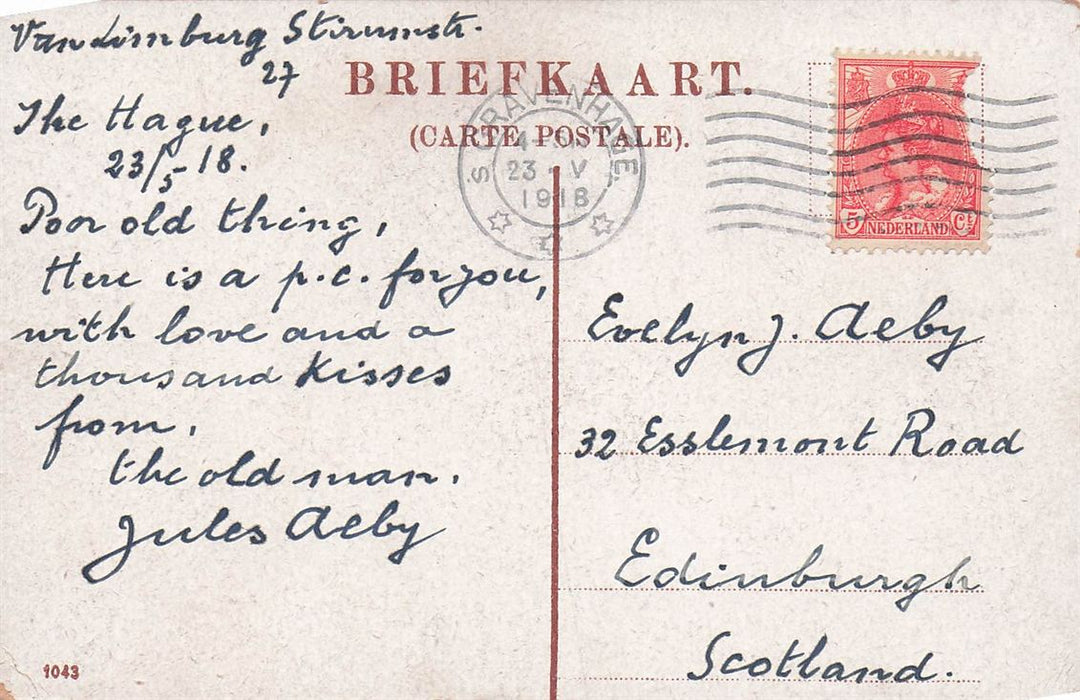 Van Limburg Stirumstr.
27
The Hague,
23/5 -18.
Poor old thing,
Here is a p.c. for you,
with love and a
thousand kisses
from,
the old man.
Jules Aeby
1043
BRIEFKAART.
(CARTE POSTALE).
'S GRAVENHAGE.
23 · V
1918
5 NEDERLAND Ct
Evelyn J. Aeby
32 Esslemont Road
Edinburgh
Scotland.